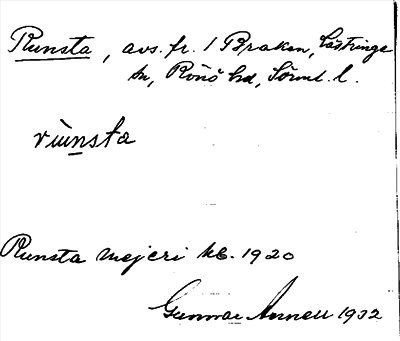 Runsta, avs. fr. 1 Braken, Lästringe
sn, Rönö hd, Sörml. l.
rùnsta
Runsta mejeri kb. 1920
Gunnar Annell 1932